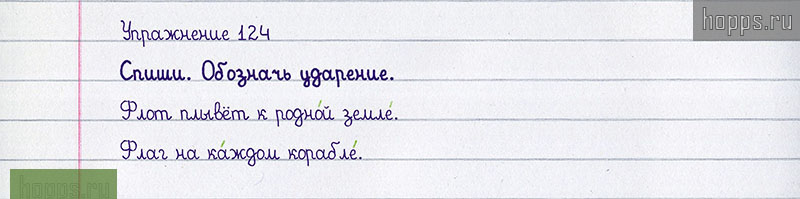 hopps.ru
Упражнение 124
Спиши. Обозначь ударение.
Флот плывёт к родно́й земле́.
Флаг на ка́ждом корабле́.
hopps.ru